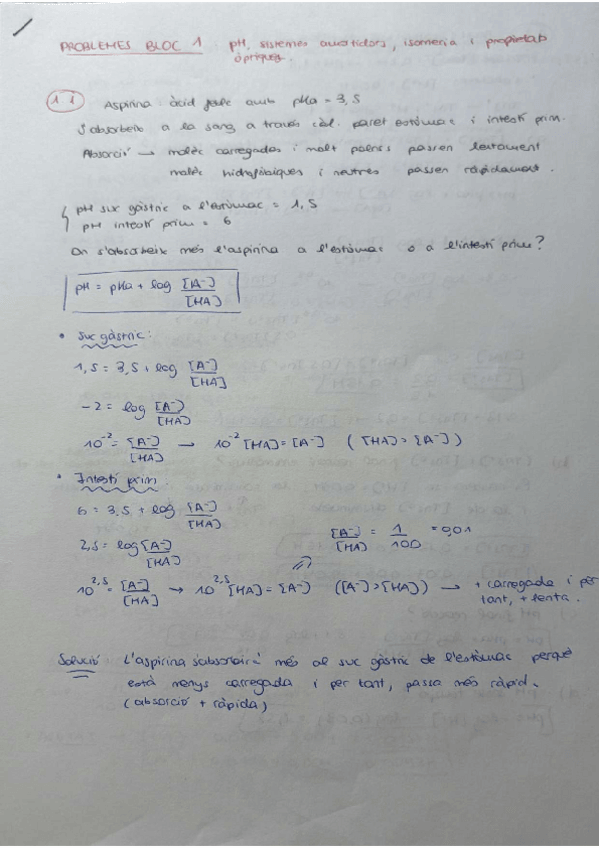 PROBLEMES BLOC 1 pH, sistemes amortidors, isomeria i propietats
òptiques.
1.1 Aspirina: àcid feble amb pKa = 3,5
S'absorbeix a la sang a través cèl. paret estómac i intestí prim.
Absorció → molèc carregades i molt polars passen lentament
molèc hidrofòbiques i neutres passen ràpidament.
{ pH suc gàstric a l'estómac = 1,5
pH intestí prim = 6
On s'absorbeix més l'aspirina a l'estómac o a l'intestí prim?
pH = pKa + log [A⁻]/[HA]
• Suc gàstric:
1,5 = 3,5 + log [A⁻]/[HA]
-2 = log [A⁻]/[HA]
10⁻² = [A⁻]/[HA] → 10⁻² [HA] = [A⁻] ([HA] > [A⁻])
• Intestí prim:
6 = 3,5 + log [A⁻]/[HA]
[A⁻]/[HA] = 1/100 = 0,01
2,5 = log [A⁻]/[HA]
10^2,5 = [A⁻]/[HA] → 10^2,5 [HA] = [A⁻] ([A⁻] > [HA]) → + carregada i per
tant, + lenta.
Solució L'aspirina s'absorbirà més al suc gàstric de l'estómac perquè
està menys carregada i per tant, passa més ràpid.
(absorció + ràpida)